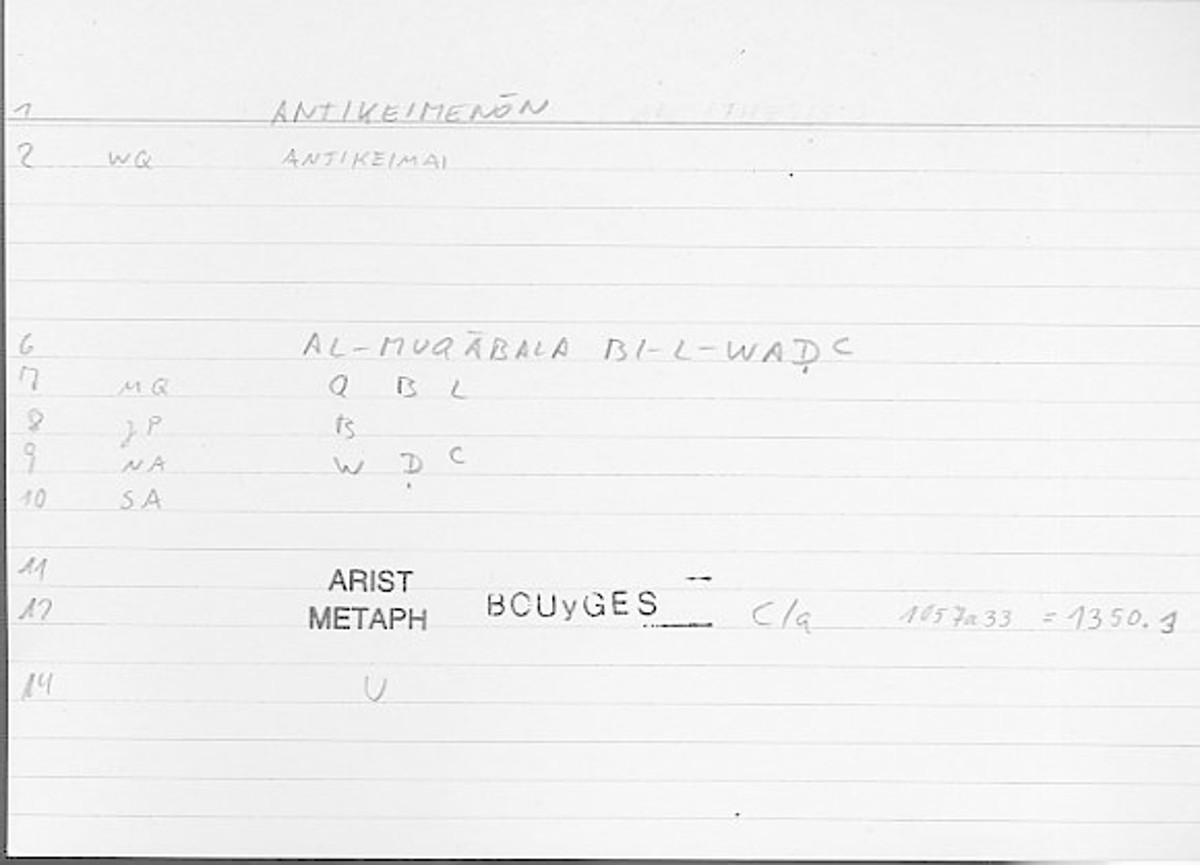 1 ANTIKEIMENŌN
2 WQ ANTIKEIMAI
6 AL-MUQĀBALA BI-L-WAḌC
7 MQ Q B L
8 JP B
9 NA W Ḍ C
10 SA
11 ARIST
12 METAPH BOUyGES C/a 1057a33 = 1350.1
14 U